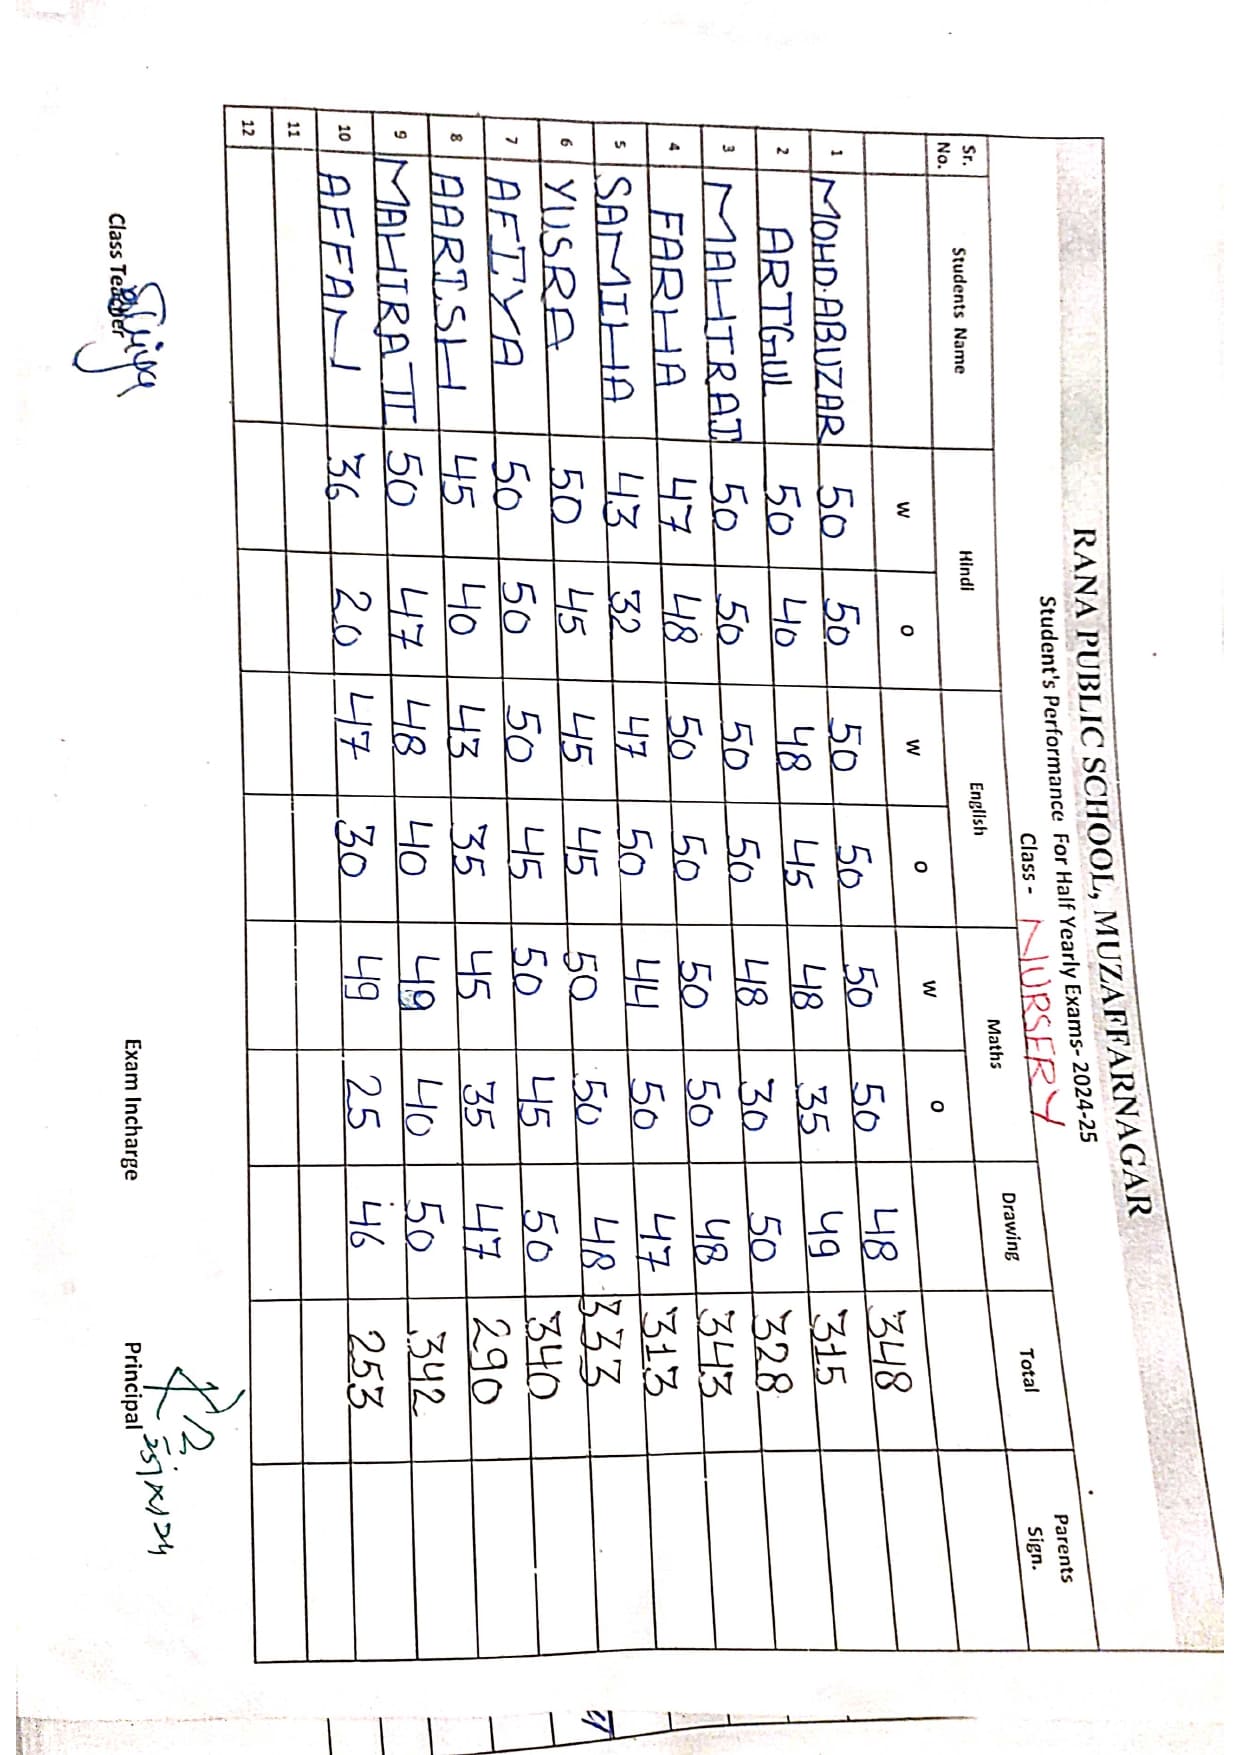 RANA PUBLIC SCHOOL, MUZAFFARNAGAR
Student's Performance For Half Yearly Exams- 2024-25
Class- NURSERY
Sr. No. Students Name Hindi English Maths Drawing Total Parents Sign.
W O W O W O
1 MOHD.ABUZAR 50 50 50 50 50 50 48 348
2 ARTGUL 50 40 48 45 48 35 49 315
3 MAHIRA I 50 50 50 50 48 30 50 328
4 FARHA 47 48 50 50 50 50 48 343
5 SAMIHA 43 32 47 50 44 50 47 313
6 YUSRA 50 45 45 45 50 50 48 333
7 AFIYA 50 50 50 45 50 45 50 340
8 AARISH 45 40 43 35 45 35 47 290
9 MAHIRA II 50 47 48 40 49 40 50 342
10 AFFAN 36 20 47 30 49 25 46 253
11
12
Class Teacher Exam Incharge Principal